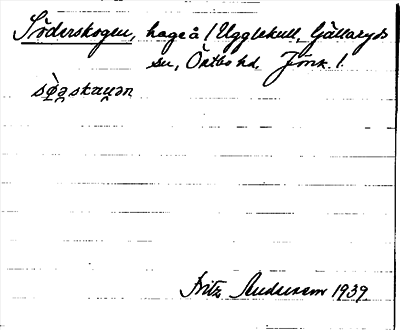 Söderskogen, hage å 1 Ugglekull, Gällaryds
sn, Östbo hd. Jönk. l.
Fritz Andersson 1939